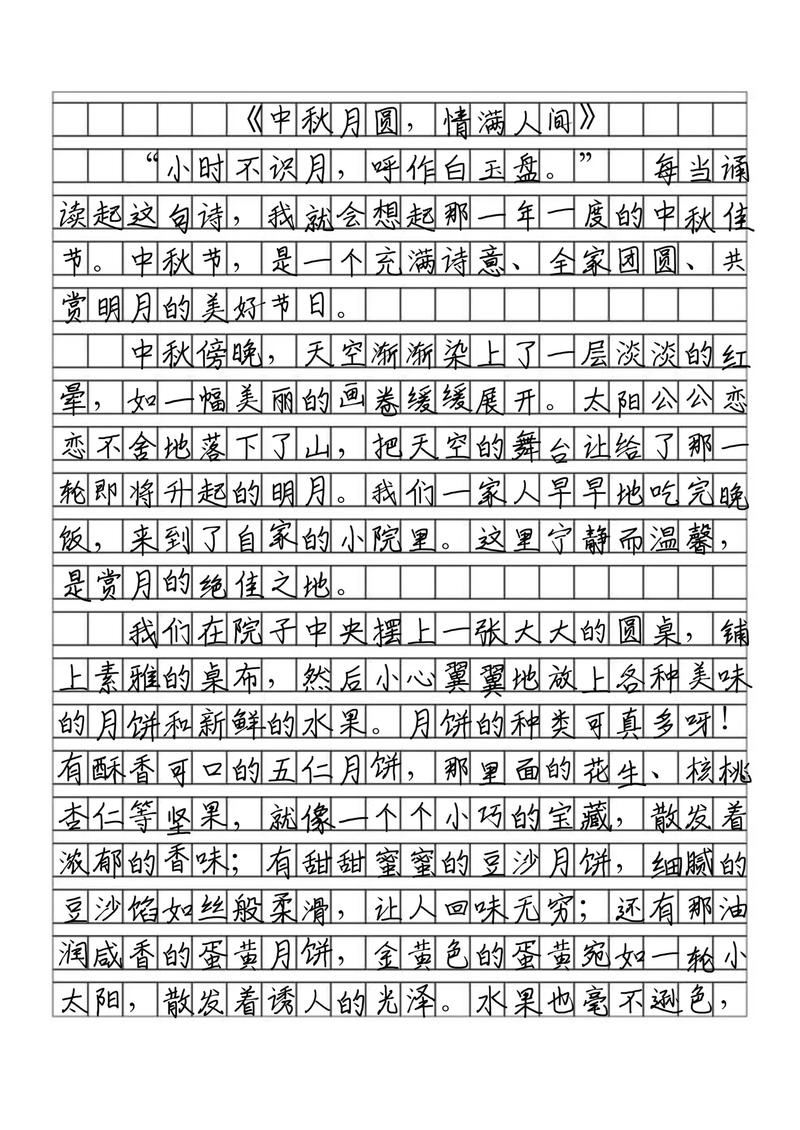 《中秋月圆，情满人间》
“小时不识月，呼作白玉盘。” 每当诵
读起这句诗，我就会想起那一年一度的中秋佳
节。中秋节，是一个充满诗意、全家团圆、共
赏明月的美好节日。
中秋傍晚，天空渐渐染上了一层淡淡的红
晕，如一幅美丽的画卷缓缓展开。太阳公公恋
恋不舍地落下了山，把天空的舞台让给了那一
轮即将升起的明月。我们一家人早早地吃完晚
饭，来到了自家的小院里。这里宁静而温馨，
是赏月的绝佳之地。
我们在院子中央摆上一张大大的圆桌，铺
上素雅的桌布，然后小心翼翼地放上各种美味
的月饼和新鲜的水果。月饼的种类可真多呀！
有酥香可口的五仁月饼，那里面的花生、核桃
杏仁等坚果，就像一个个小巧的宝藏，散发着
浓郁的香味；有甜甜蜜蜜的豆沙月饼，细腻的
豆沙馅如丝般柔滑，让人回味无穷；还有那油
润咸香的蛋黄月饼，金黄色的蛋黄宛如一轮小
太阳，散发着诱人的光泽。水果也毫不逊色，